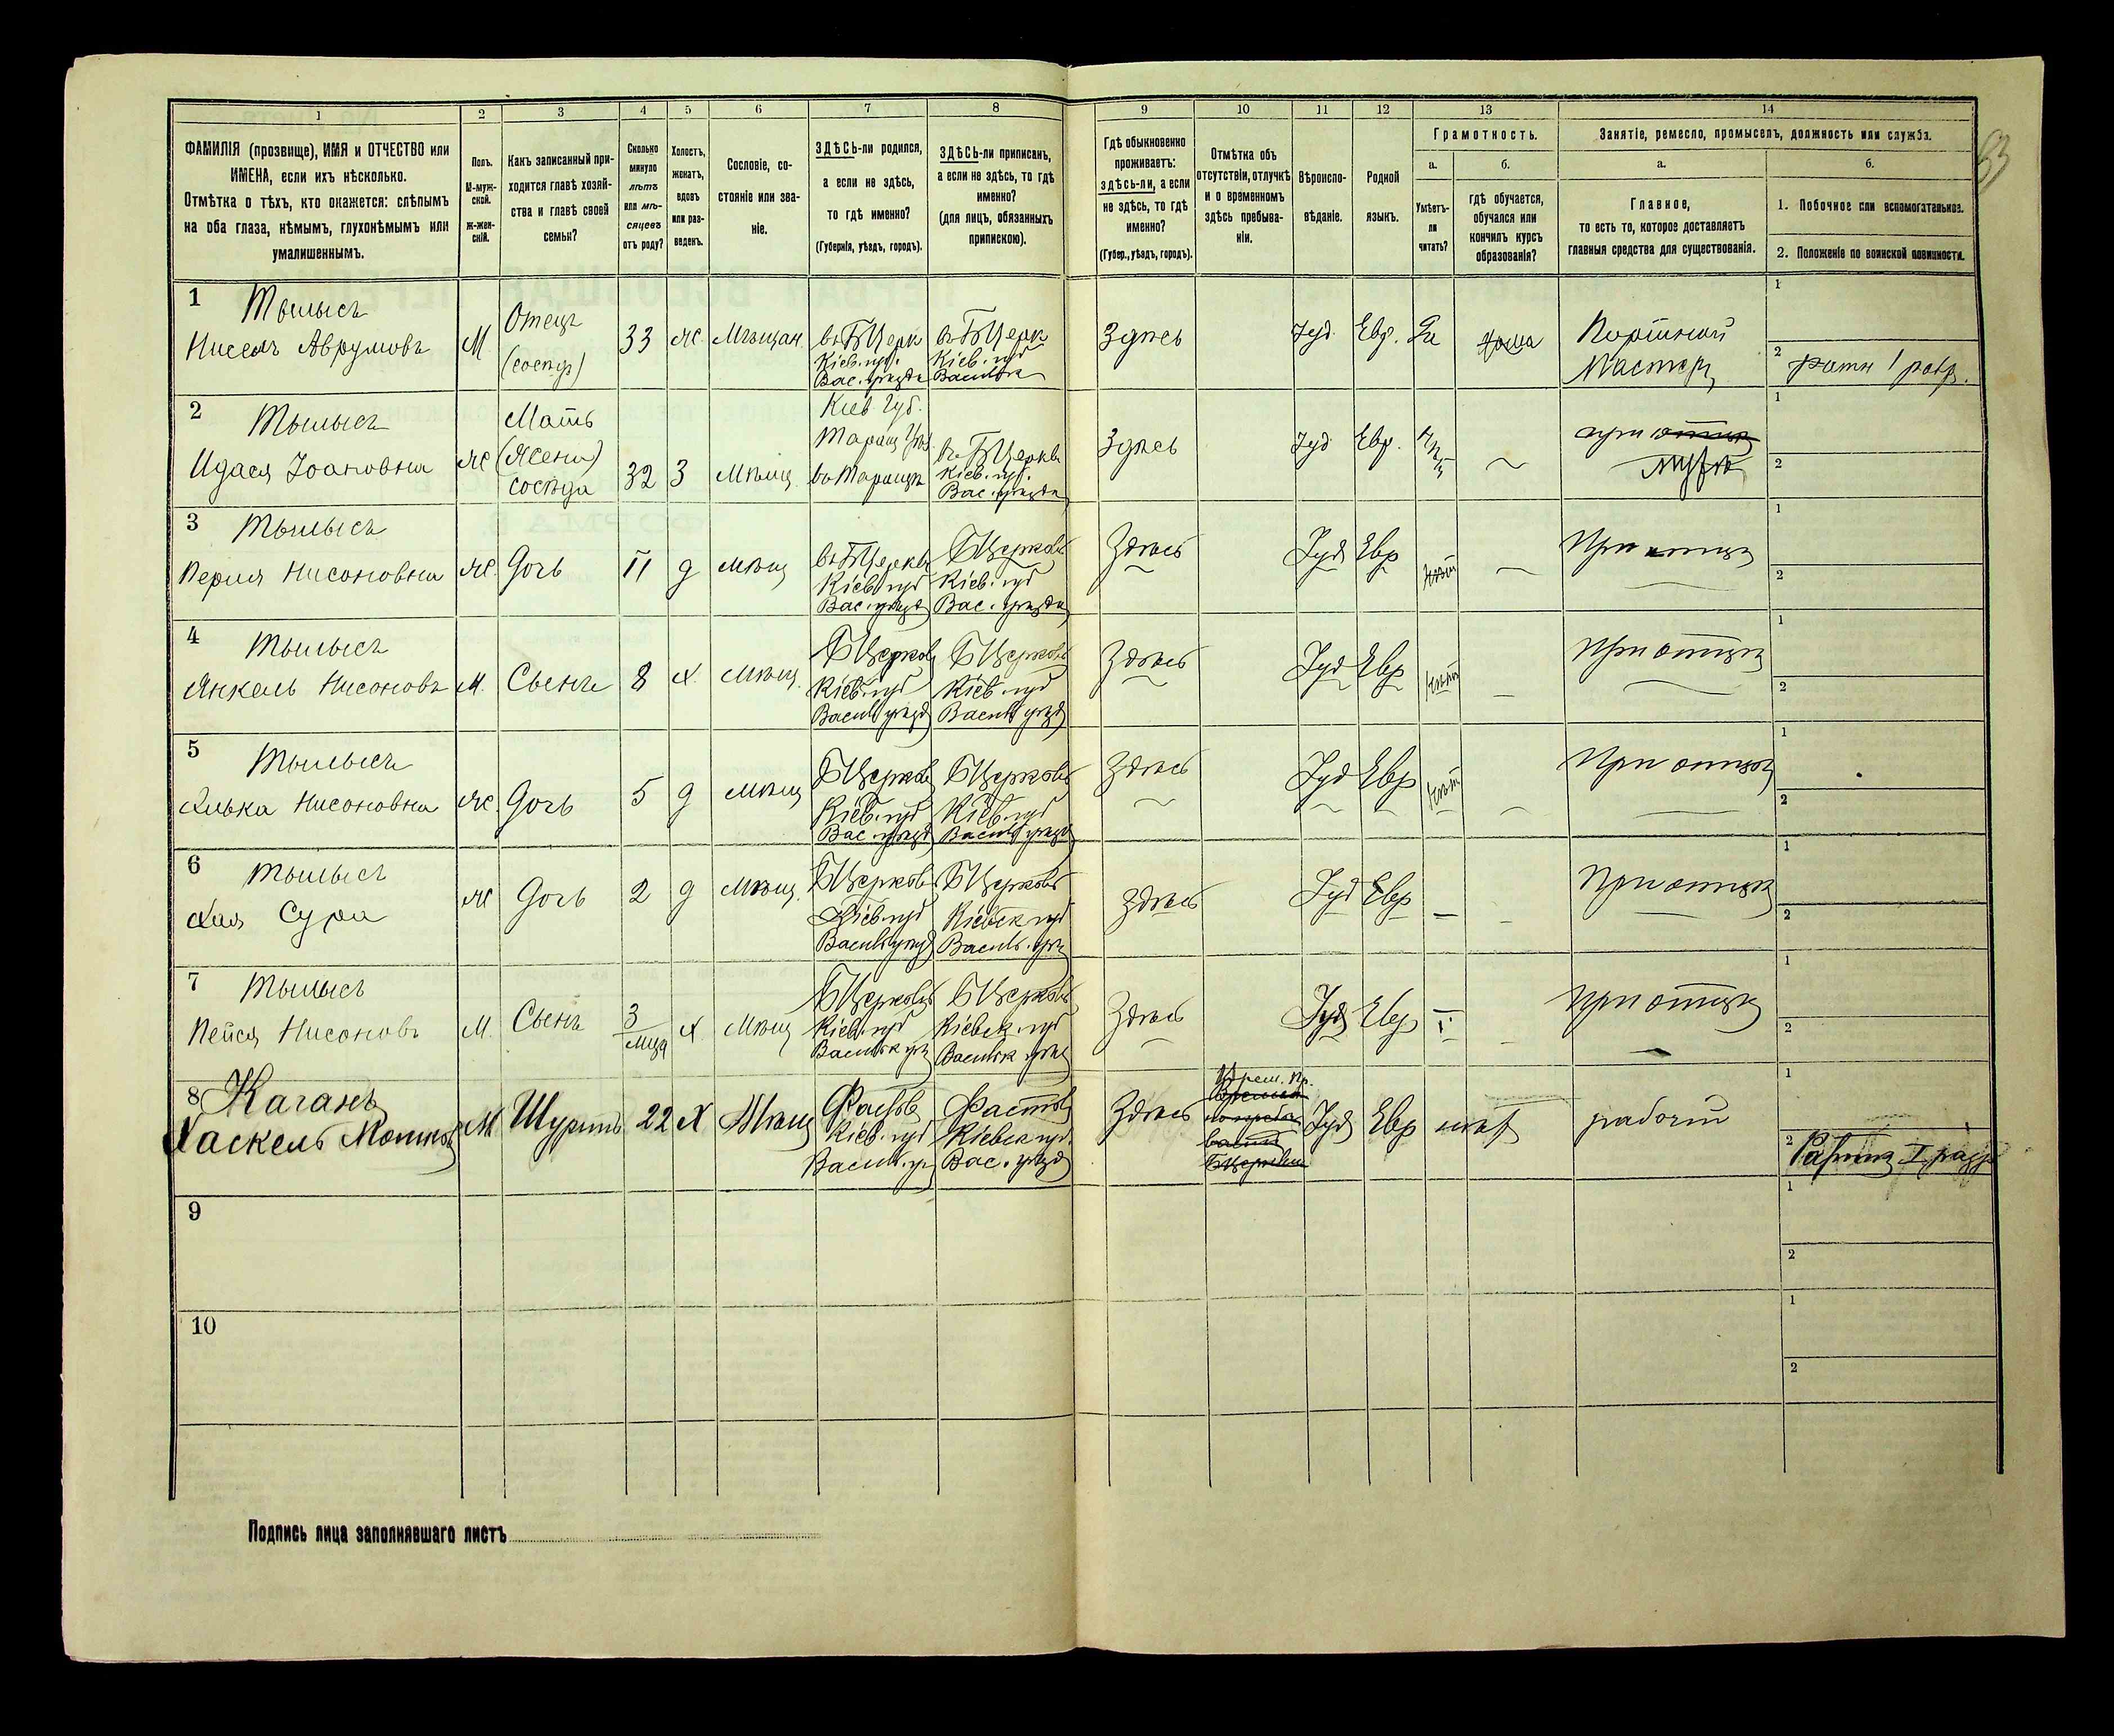 53
1 2 3 4 5 6 7 8 9 10 11 12 13 14
ФАМИЛІЯ (прозвище), ИМЯ и ОТЧЕСТВО или
ИМЕНА, если ихъ нѣсколько.
Отмѣтка о тѣхъ, кто окажется: слѣпымъ
на оба глаза, нѣмымъ, глухонѣмымъ или
умалишеннымъ.
Полъ.
М-муж-
ской.
Ж-жен-
скій.
Какъ записанный при-
ходится главѣ хозяй-
ства и главѣ своей
семьи?
Сколько
минуло
лѣтъ
или мѣ-
сяцевъ
отъ роду?
Холостъ,
женатъ,
вдовъ
или раз-
веденъ.
Сословіе, со-
стояніе или зва-
ніе.
ЗДѢСЬ-ли родился,
а если не здѣсь,
то гдѣ именно?
(Губернія, уѣздъ, городъ).
ЗДѢСЬ-ли приписанъ,
а если не здѣсь, то гдѣ
именно?
(для лицъ, обязанныхъ
припискою).
Гдѣ обыкновенно
проживаетъ:
здѣсь-ли, а если
не здѣсь, то гдѣ
именно?
(Губер., уѣздъ, городъ).
Отмѣтка объ
отсутствіи, отлучкѣ
и о временномъ
здѣсь пребыва-
ніи.
Вѣроиспо-
вѣданіе.
Родной
языкъ.
Грамотность.
а.
Умѣетъ-
ли
читать?
б.
гдѣ обучается,
обучался или
кончилъ курсъ
образованія?
Занятіе, ремесло, промыселъ, должность или служба.
а.
Главное,
то есть то, которое доставляетъ
главныя средства для существованія.
б.
1. Побочное или вспомогательное.
2. Положеніе по воинской повинности.
1 Тылысъ
Нисель Аврумовъ
М
Отецъ
(сосѣдъ)
33
Ж.
Мѣщан.
въ БЦерк
Кіев. губ.
Вас. уѣзда
въ БЦерк
Кіев. губ
Василька
Здѣсь
Іуд.
Евр.
Да
дома
Портной
Мастеръ
1
2 Ратн 1 разр.
2 Тылысъ
Идася Іоановна
Ж
Мать
(Жена)
сосѣда
32
З
Мѣщ.
Кіев. Губ.
Таращ Уѣз.
въ Таращѣ
въ БЦеркв
Кіев. губ.
Вас. уѣзда
Здѣсь
Іуд
Евр.
Нѣт
при отцѣ
мужѣ
1
2
3 Тылысъ
Перля Нисоновна
Ж.
Дочь
11
д
мѣщ
въ БЦеркв
Кіев. губ
Вас. уѣзд
БЦерковь
Кіев. губ
Вас. уѣзда
Здѣсь
Іуд
Евр
Нѣт
При отцѣ
1
2
4 Тылысъ
Янкель Нисоновъ
М.
Сынъ
8
х.
мѣщ.
БЦерковь
Кіев. губ
Васильк уѣзд
БЦерковь
Кіев. губ
Васильк уѣзд
Здѣсь
Іуд
Евр
Нѣт
При отцѣ
1
2
5 Тылысъ
Хивка Нисоновна
Ж.
Дочь
5
д
мѣщ
БЦерковь
Кіев. губ
Вас. уѣзд
БЦерковь
Кіев. губ
Васильк уѣзд
Здѣсь
Іуд
Евр
Нѣт
При отцѣ
1
2
6 Тылысъ
Хая Сура
Ж
Дочь
2
д
Мѣщ.
БЦерковь
Кіев. губ
Васильк уѣзд
БЦерковь
Кіевск губ
Васильк. уѣз
Здѣсь
Іуд
Евр
При отцѣ
1
2
7 Тылысъ
Пейся Нисоновъ
М.
Сынъ
3
мца
х.
Мѣщ
БЦерковь
Кіев. губ
Васильк уѣз
БЦерковь
Кіевск. губ
Васильк уѣзд
Здѣсь
Іуд
Евр
При отцѣ
1
2
8 Каганъ
Хаскель Мошков
М
Шуринъ
22
Х
Мѣщ
Фастов
Кіев. губ
Васильк. уѣ
Фастов
Кіевск губ.
Вас. уѣзд
Здѣсь
Врем. пр.
Іуд
Евр
нѣт
рабочій
1
2 Ратник I разр
9
1
2
10
1
2
Подпись лица заполнявшаго листъ